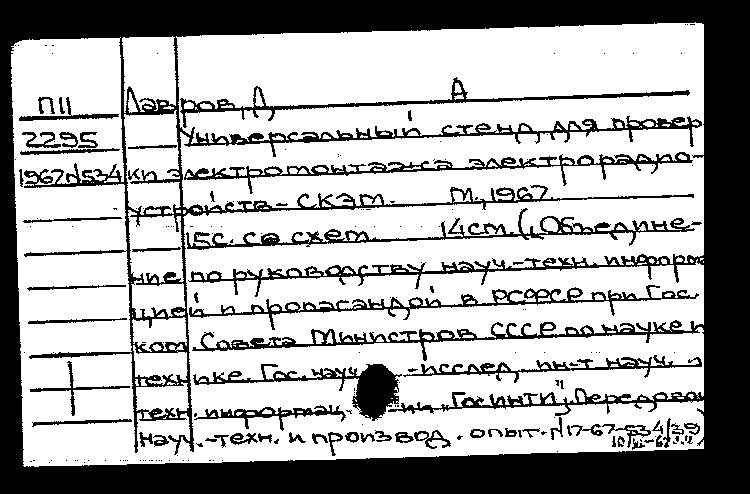 П11 Лавров, Д. А
2295 Универсальный стенд для провер
1967/534 ки электромонтажа электрорадио-
устройств – СКЭТ. М., 1967.
15с. со схем. 14см. („Объедине-
ние по руководству науч.-техн. информа
цией и пропагандой в РСФСР при Гос.
ком. Совета Министров СССР по науке и
технике. Гос. науч.-исслед. ин-т науч. и
техн. информац ии „ГОСИНТИ“, Передовой
науч.-техн. и производ. опыт. № 17-67-534/39)